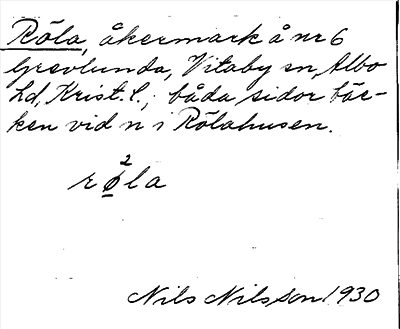 Röla, åkermark å nr 6
Grevlunda, Vitaby sn, Albo
hd, Krist. l.; båda sidor bäc-
ken vid n i Rölahusen.
2
røla
Nils Nilsson 1930